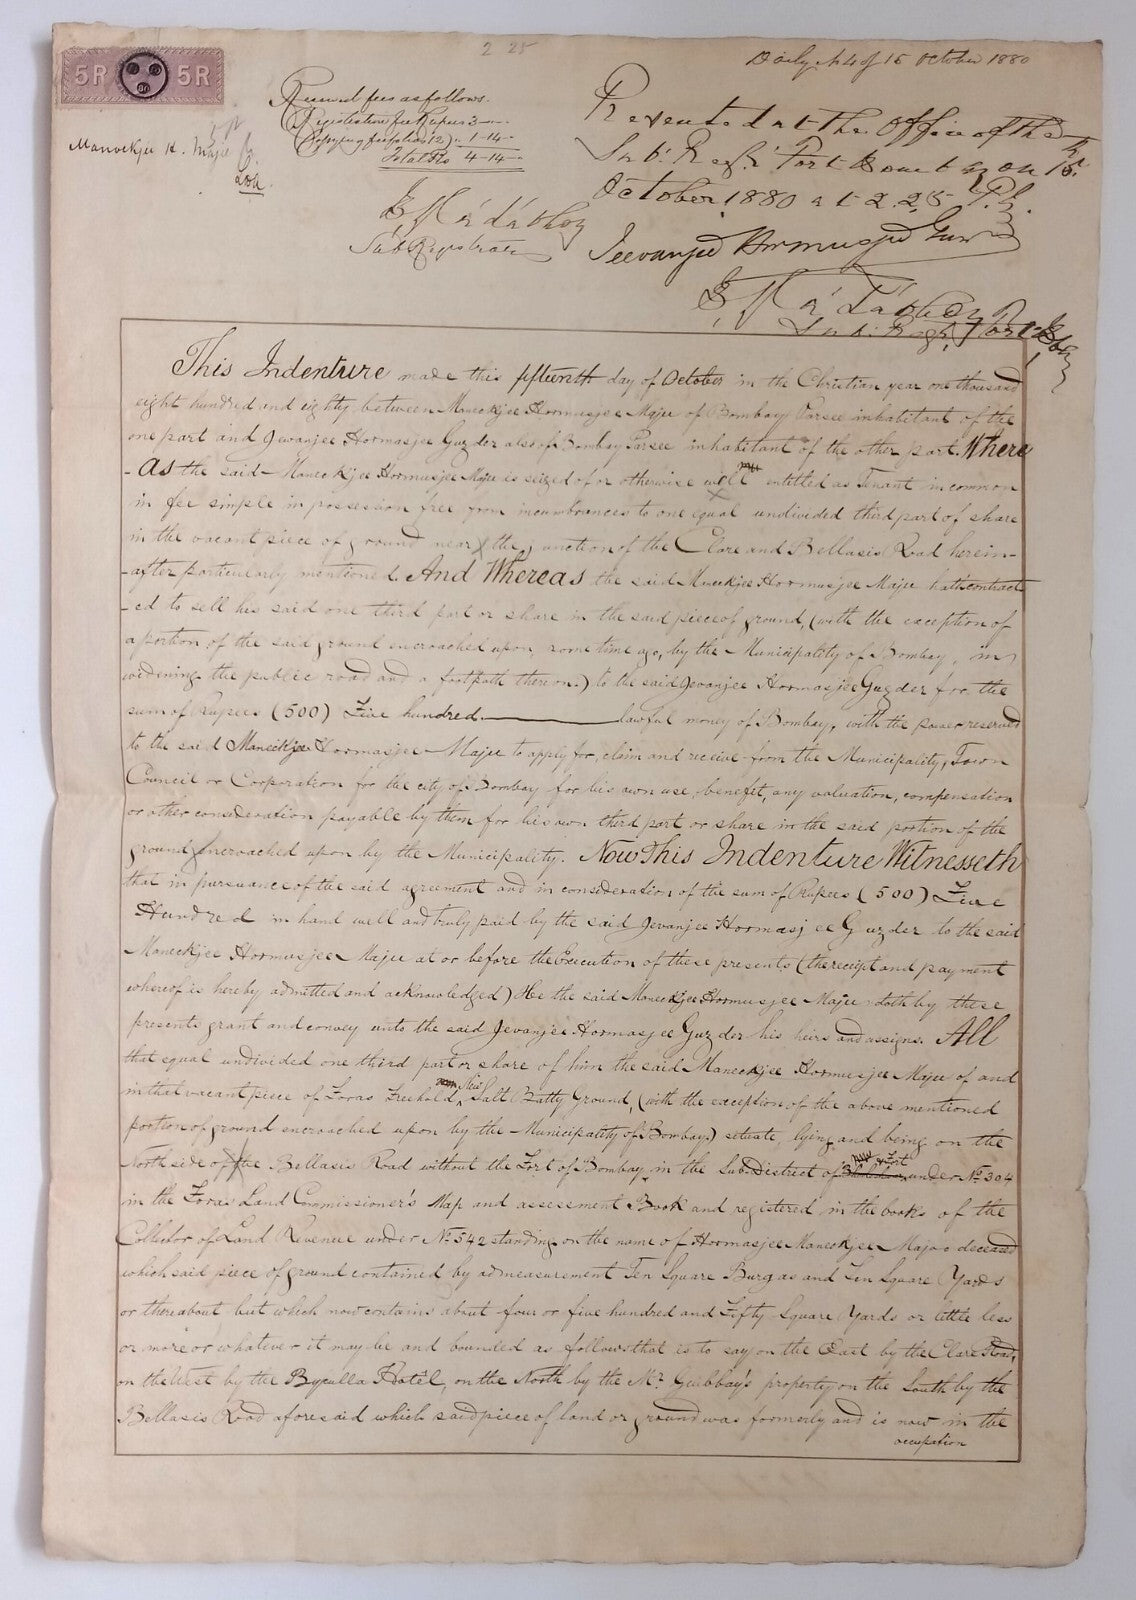 2 25
Daily No 4 of 15 October 1880
5R 5R
Received fees as follows.
Registration fee Rupees 3 —
Copying fee folios (12) .. 1-14-
Total Rs 4-14-
Manockjee H. Majee
Sub Registrar
Presented at the Office of the
Sub: Regr: Fort Bombay on 15
October 1880 at 2.25 P.M.
Jeevanjee Hormusjee Guz
Sub: Regr: Fort
This Indenture made this fifteenth day of October in the Christian year one thousand
eight hundred and eighty between Maneckjee Hormusjee Majee of Bombay Parsee inhabitant of the
one part and Jevanjee Hormasjee Guzder also of Bombay Parsee inhabitant of the other part. Where
-As the said Maneckjee Hormusjee Majee is seized of or otherwise well entitled as Tenant in common
in fee simple in possession free from incumbrances to one equal undivided third part of share
in the vacant piece of ground near the junction of the Clare and Bellasis Road herein-
-after particularly mentioned. And Whereas the said Maneckjee Hormusjee Majee hath contract
-ed to sell his said one third part or share in the said piece of ground, (with the exception of
a portion of the said ground encroached upon, some time ago, by the Municipality of Bombay, in
widening the public road and a footpath thereon.) to the said Jevanjee Hormasjee Guzder for the
sum of Rupees (500) Five hundred ——— lawful money of Bombay, with the power reserved
to the said Maneckjee Hormasjee Majee to apply for, claim and receive from the Municipality, Town
Council or Corporation for the city of Bombay for his own use, benefit, any valuation, compensation
or other consideration payable by them for his own third part or share in the said portion of the
ground encroached upon by the Municipality. Now This Indenture Witnesseth
that in pursuance of the said agreement and in consideration of the sum of Rupees (500) Five
Hundred in hand well and truly paid by the said Jevanjee Hormasjee Guzder to the said
Maneckjee Hormusjee Majee at or before the Execution of these presents (the receipt and payment
whereof is hereby admitted and acknowledged) He the said Maneckjee Hormusjee Majee doth by these
presents grant and convey unto the said Jevanjee Hormasjee Guzder his heirs and assigns. All
that equal undivided one third part or share of him the said Maneckjee Hormusjee Majee of and
in that vacant piece of Foras Freehold, Salt Batty Ground, (with the exception of the above mentioned
portion of ground encroached upon by the Municipality of Bombay.) situate, lying and being on the
North side of the Bellasis Road without the Fort of Bombay, in the Sub District of Fort under No 304
in the Foras Land Commissioner's Map and assessment Book and registered in the books of the
Collector of Land Revenue under No 542 standing on the name of Hormasjee Maneckjee Majee deceased
which said piece of ground contained by admeasurement Ten Square Burgas and Ten Square Yards
or thereabout but which now contains about four or five hundred and Fifty Square Yards or little less
or more or whatever it may be and bounded as follows that is to say on the East by the Clare Road,
on the West by the Byculla Hotel, on the North by the Mr Gubbay's property, on the South by the
Bellasis Road aforesaid which said piece of land or ground was formerly and is now in the
occupation